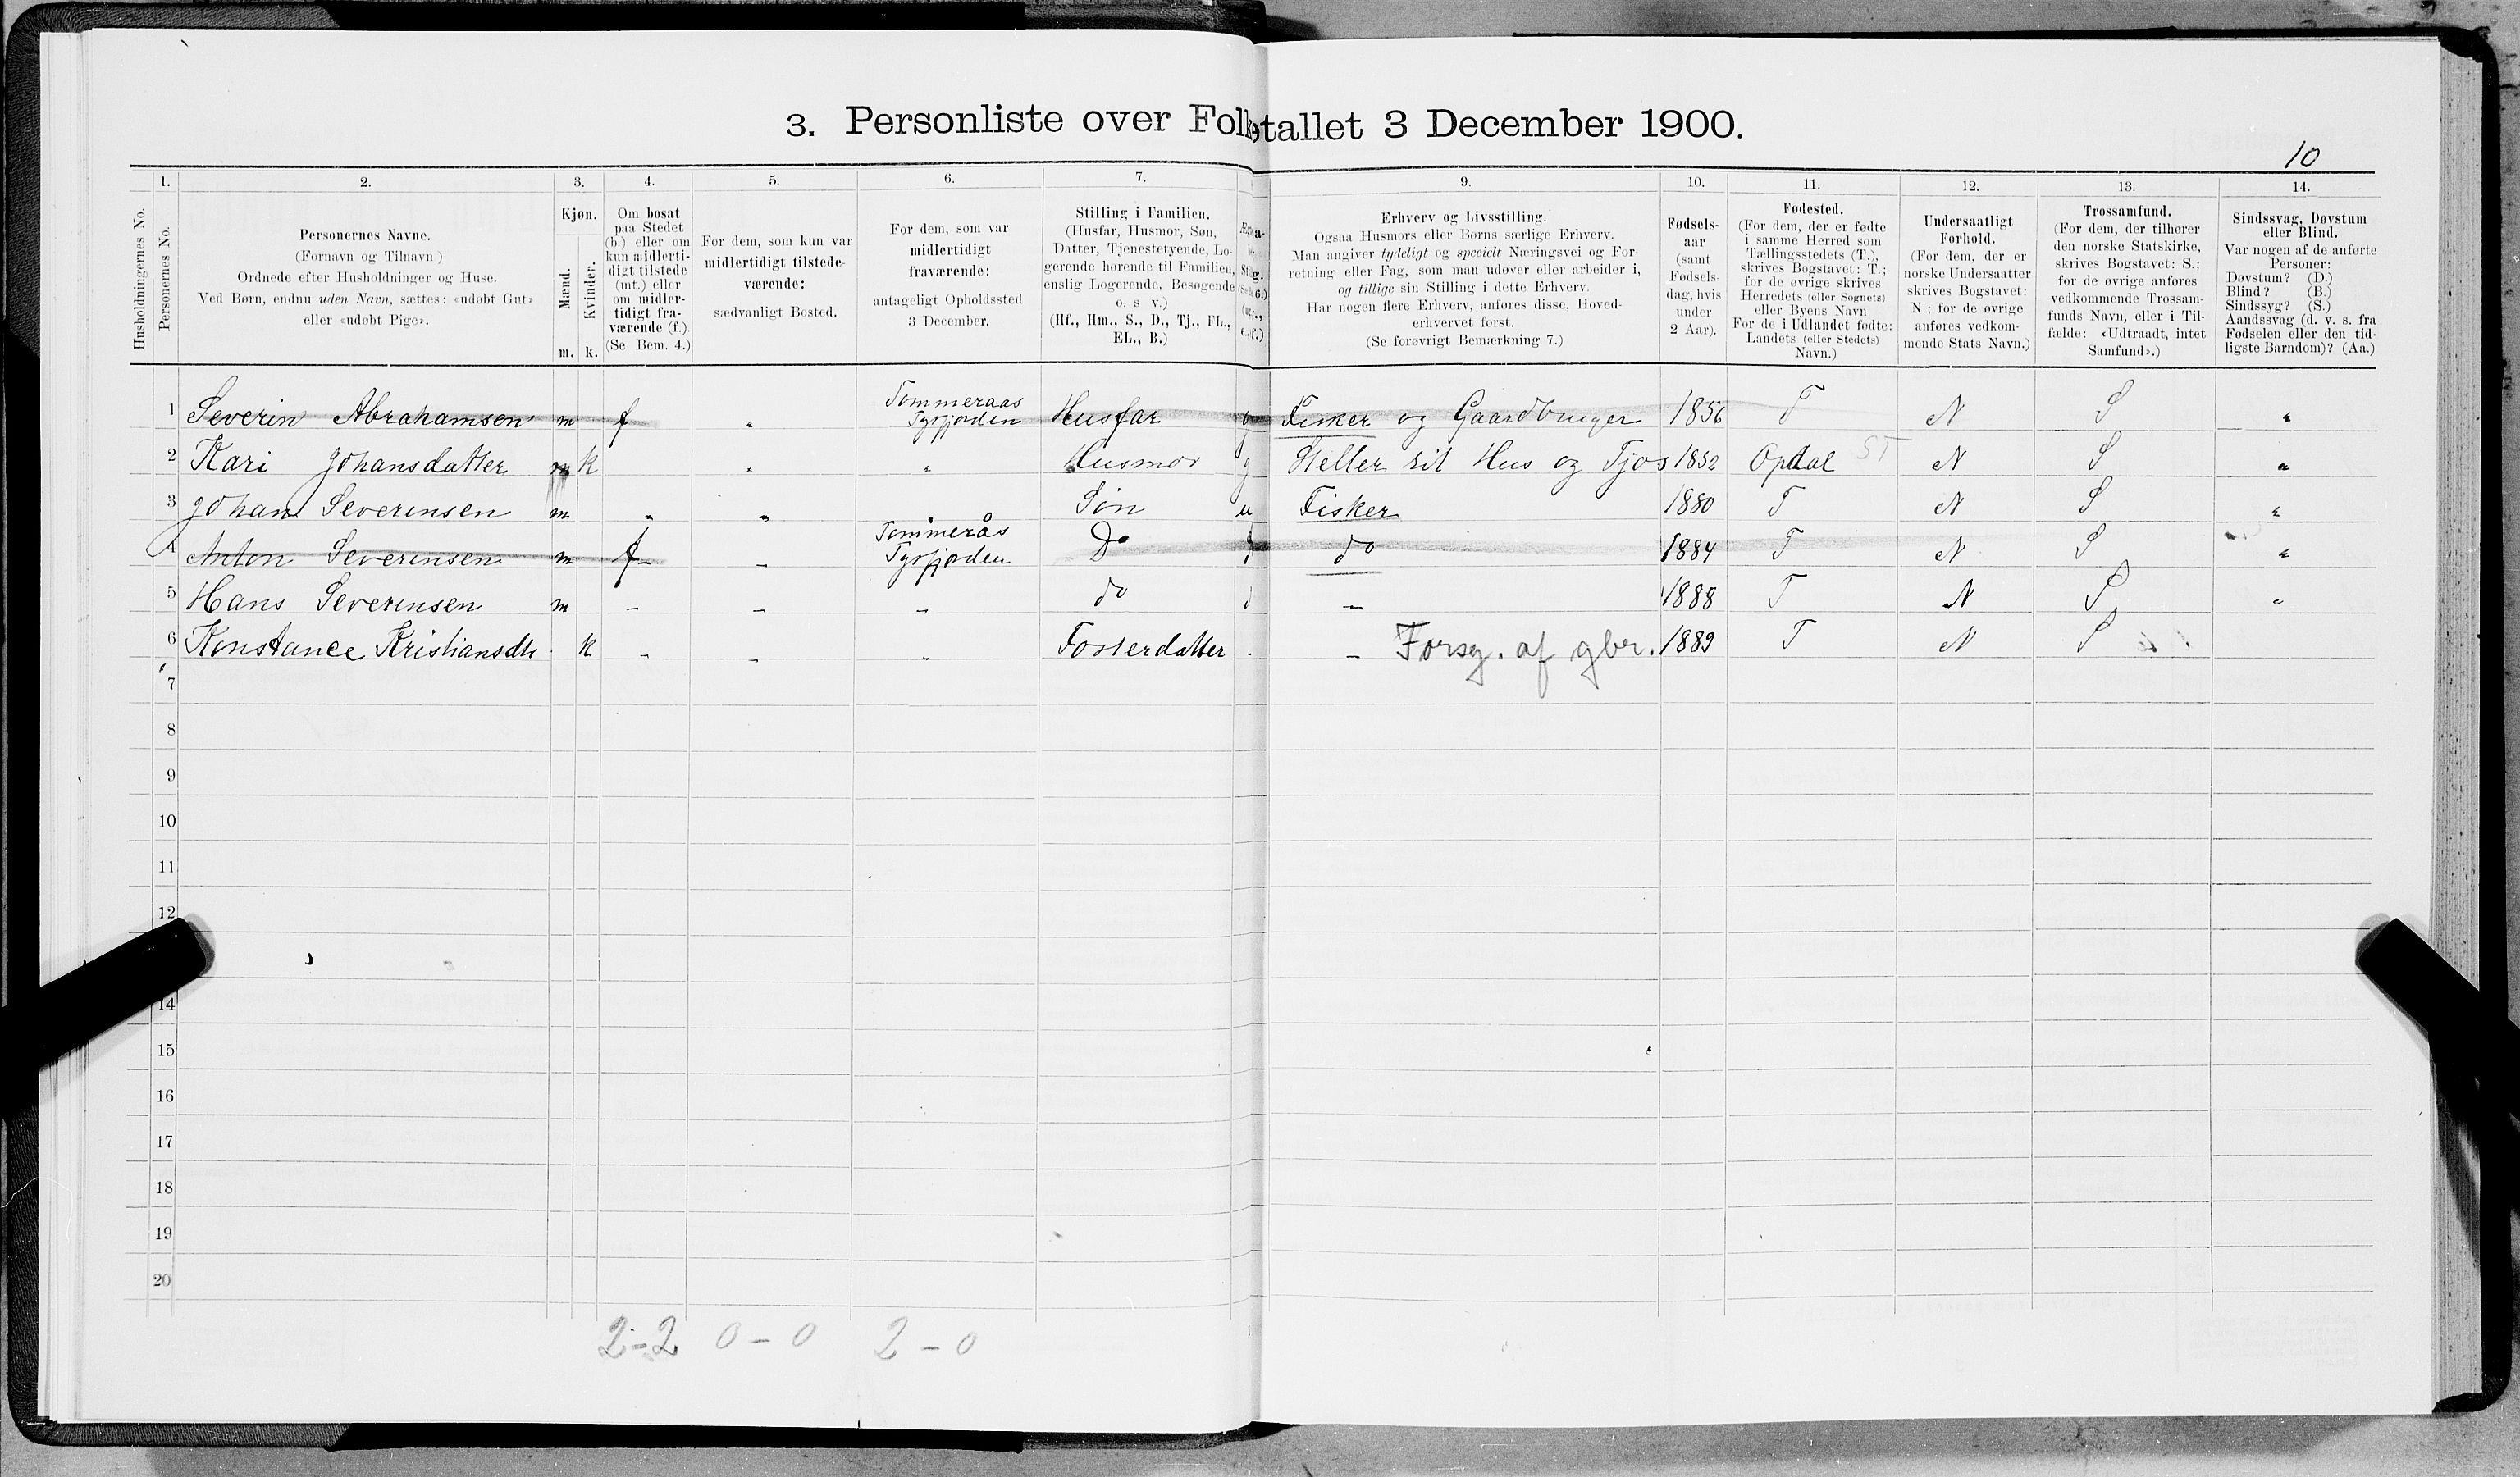 3. Personliste over Folketallet 3 December 1900.
10
1. 2. 3. 4. 5. 6. 7. 9. 10. 11. 12. 13. 14.
Husholdningernes No.
Personernes No.
Personernes Navne.
(Fornavn og Tilnavn)
Ordnede efter Husholdninger og Huse.
Ved Børn, endnu uden Navn, sættes: «udøbt Gut»
eller «udøbt Pige».
Kjøn.
Mænd.
Kvinder.
m. k.
Om bosat
paa Stedet
(b.) eller om
kun midlerti-
digt tilstede
(mt.) eller
om midler-
tidigt fra-
værende (f.).
(Se Bem. 4.)
For dem, som kun var
midlertidigt tilstede-
værende:
sædvanligt Bosted.
For dem, som var
midlertidigt
fraværende:
antageligt Opholdssted
3 December.
Stilling i Familien.
(Husfar, Husmor, Søn,
Datter, Tjenestetyende, Lo-
gerende hørende til Familien,
enslig Logerende, Besøgende
o. s v.)
(Hf., Hm., S., D., Tj., FL.,
EL., B.)
Erhverv og Livsstilling.
Ogsaa Husmors eller Børns særlige Erhverv.
Man angiver tydeligt og specielt Næringsvei og For-
retning eller Fag, som man udøver eller arbeider i,
og tillige sin Stilling i dette Erhverv.
Har nogen flere Erhverv, anføres disse, Hoved-
erhvervet først.
(Se forøvrigt Bemærkning 7.)
Fødsels-
aar
(samt
Fødsels-
dag, hvis
under
2 Aar).
Fødested.
(For dem, der er fødte
i samme Herred som
Tællingsstedets (T.),
skrives Bogstavet: T.;
for de øvrige skrives
Herredets (eller Sognets)
eller Byens Navn
For de i Udlandet fødte:
Landets (eller Stedets)
Navn.)
Undersaatligt
Forhold.
(For dem, der er
norske Undersaatter
skrives Bogstavet:
N.; for de øvrige
anføres vedkom-
mende Stats Navn.)
Trossamfund.
(For dem, der tilhører
den norske Statskirke,
skrives Bogstavet: S.;
for de øvrige anføres
vedkommende Trossam-
funds Navn, eller i Til-
fælde: «Udtraadt, intet
Samfund».)
Sindssvag, Døvstum
eller Blind.
Var nogen af de anførte
Personer:
Døvstum? (D.)
Blind? (B.)
Sindssyg? (S.)
Aandssvag (d. v. s. fra
Fødselen eller den tid-
ligste Barndom)? (Aa.)
1 Severin Abrahamsen m f " Tommeraas Tysfjorden Husfar g Fisker og Gaardbruger 1856 T N S "
2 Kari Johansdatter k " " Husmor g Steller til Hus og Fjøs 1852 Opdal ST N S "
3 Johan Severinsen m " " " Søn u Fisker 1880 T N S "
4 Anton Severinsen m f - Tommerås Tysfjorden Do do 1884 T N S "
5 Hans Severinsen m - - " do - 1888 T N S "
6 Konstance Kristiansdtr k - - " Fosterdatter - Forsg. af gbr. 1889 T N S
7
8
9
10
11
12
14
15
16
17
18
19
20
2-2 0-0 2-0